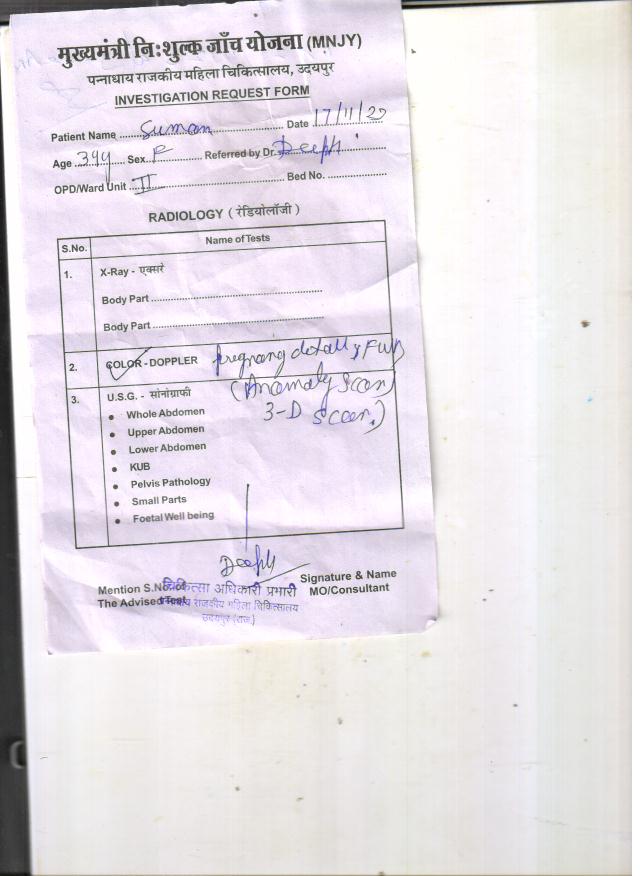 मुख्यमंत्री निःशुल्क जाँच योजना (MNJY)
पन्नाधाय राजकीय महिला चिकित्सालय, उदयपुर
INVESTIGATION REQUEST FORM
Patient Name Suman Date 17/11/20
Age 39y Sex F Referred by Dr. Deepti
OPD/Ward Unit II Bed No.
RADIOLOGY ( रेडियोलॉजी )
S.No. Name of Tests
1. X-Ray - एक्सरे
Body Part
Body Part
2. COLOR - DOPPLER pregnancy detail & FWB
3. U.S.G. - सोनोग्राफी (Anomaly Scan)
Whole Abdomen 3-D Scan)
Upper Abdomen
Lower Abdomen
KUB
Pelvis Pathology
Small Parts
Foetal Well being
Deepti
Signature & Name
Mention S.No. of चिकित्सा अधिकारी प्रभारी MO/Consultant
The Advised Test पन्नाधाय राजकीय महिला चिकित्सालय
उदयपुर (राज.)